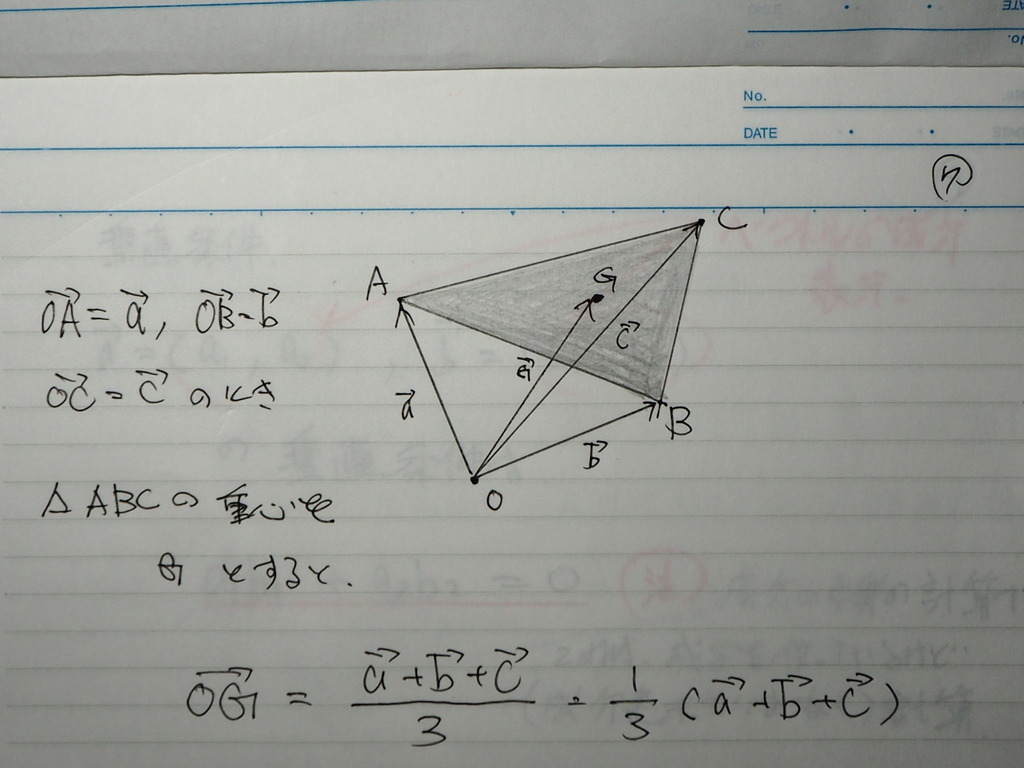 No.
DATE
ワ
OA→ = a→, OB→ = b→
OC→ = c→ のとき
△ABCの重心を
G とすると.
A
C
G
c→
g→
a→
b→
B
O
OG→ = (a→+b→+c→)/3 = 1/3 (a→+b→+c→)